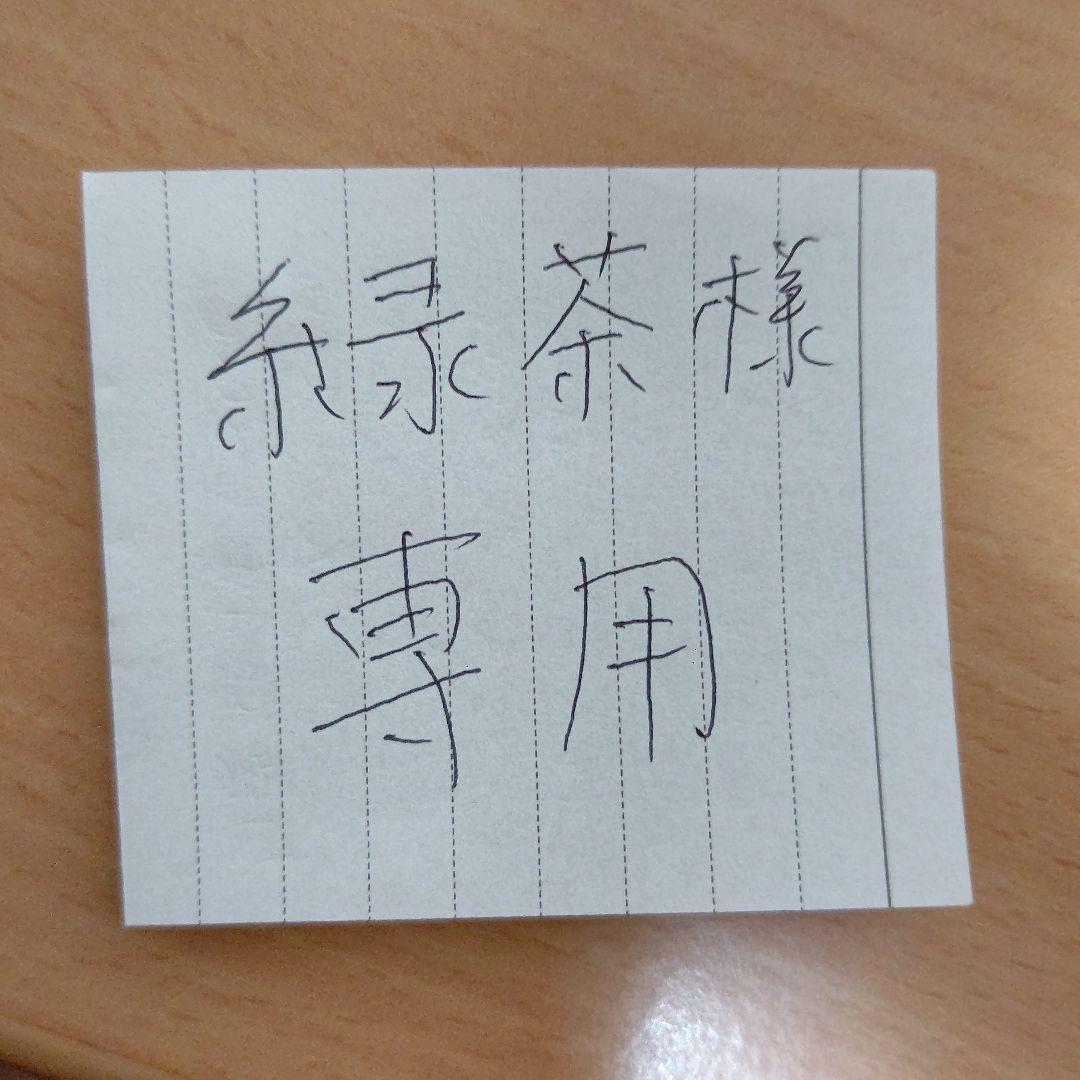 緑茶様
専用